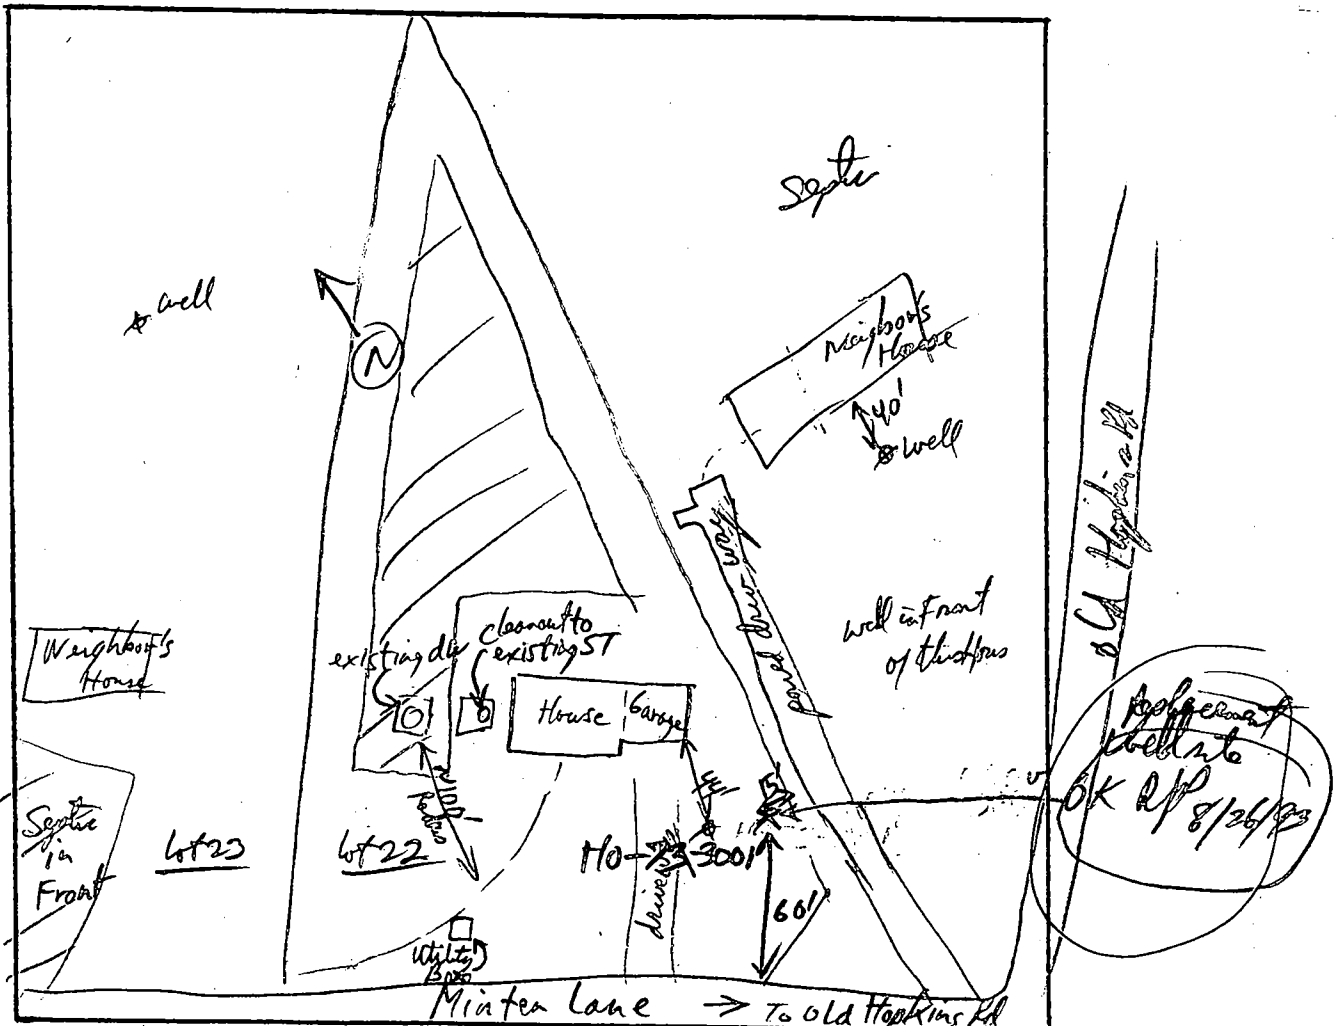 Septic
well
N
Neighbor's
House
40'
well
Old Hopkins Rd
paved drive way
well in Front
of this House
Neighbor's
House
existing dw
cleanout to
existing ST
House
Garage
Replacement
well site
OK
8/26/93
44'
15'
100'
Radius
Septic
in
Front
Lot 23
Lot 22
HO-
-3001
60'
Utility
Box
Minten Lane → To Old Hopkins Rd